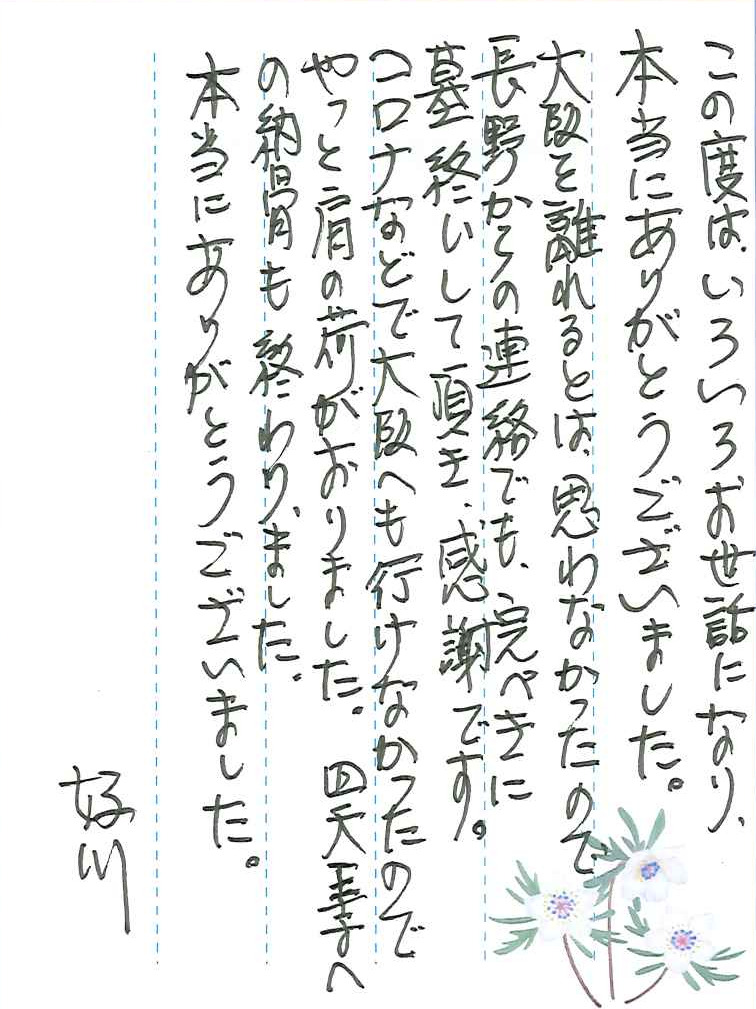 この度は、いろいろお世話になり、
本当にありがとうございました。
大阪を離れるとは、思わなかったので
長野からの連絡でも、完ぺきに
墓終いして頂き、感謝です。
コロナなどで大阪へも行けなかったので
やっと肩の荷がおりました。 四天王寺へ
の納骨も終わりました。
本当にありがとうございました。
好川